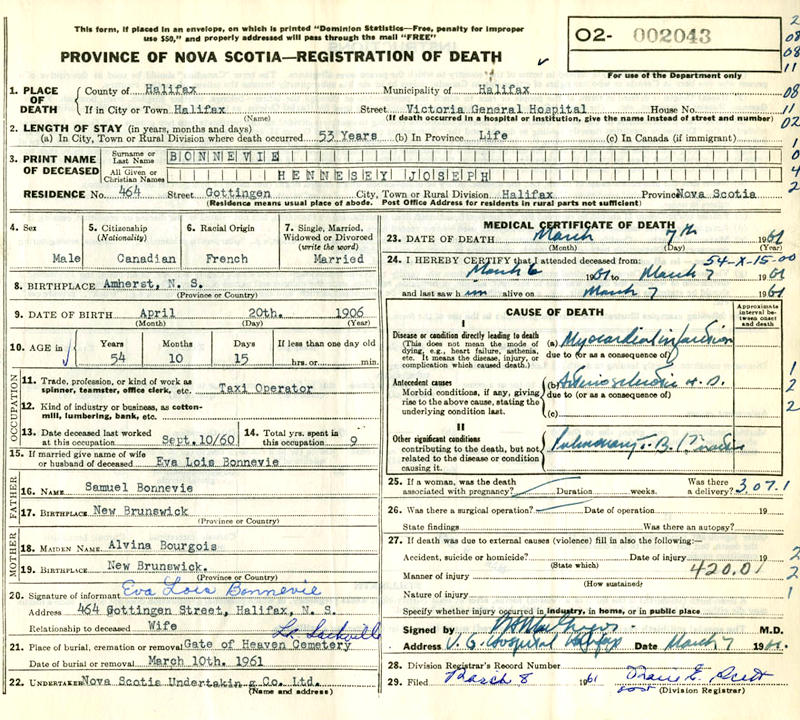 This form, if placed in an envelope, on which is printed "Dominion Statistics—Free, penalty for improper
use $50," and properly addressed will pass through the mail "FREE"
O2- 002043
For use of the Department only
PROVINCE OF NOVA SCOTIA—REGISTRATION OF DEATH
1. PLACE OF DEATH County of Halifax Municipality of Halifax
If in City or Town Halifax Street Victoria General Hospital House No.
(Name) (If death occurred in a hospital or institution, give the name instead of street and number)
2. LENGTH OF STAY (in years, months and days)
(a) In City, Town or Rural Division where death occurred 53 Years (b) In Province Life (c) In Canada (if immigrant)
3. PRINT NAME OF DECEASED Surname or Last Name BONNEVIE
All Given or Christian Names HENNESEY JOSEPH
RESIDENCE No. 464 Street Gottingen City, Town or Rural Division Halifax Province Nova Scotia
(Residence means usual place of abode. Post Office Address for residents in rural parts not sufficient)
4. Sex 5. Citizenship (Nationality) 6. Racial Origin 7. Single, Married, Widowed or Divorced (write the word)
Male Canadian French Married
8. BIRTHPLACE Amherst, N. S.
(Province or Country)
9. DATE OF BIRTH April 20th. 1906
(Month) (Day) (Year)
10. AGE in Years Months Days If less than one day old
54 10 15 hrs. or min.
OCCUPATION
11. Trade, profession, or kind of work as spinner, teamster, office clerk, etc. Taxi Operator
12. Kind of industry or business, as cotton-mill, lumbering, bank, etc.
13. Date deceased last worked at this occupation Sept. 10/60 14. Total yrs. spent in this occupation 9
15. If married give name of wife or husband of deceased Eva Lois Bonnevie
FATHER
16. NAME Samuel Bonnevie
17. BIRTHPLACE New Brunswick
(Province or Country)
MOTHER
18. MAIDEN NAME Alvina Bourgois
19. BIRTHPLACE New Brunswick.
(Province or Country)
20. Signature of informant Eva Lois Bonnevie
Address 464 Gottingen Street, Halifax, N. S.
Relationship to deceased Wife
Lr. Sackville
21. Place of burial, cremation or removal Gate of Heaven Cemetery
Date of burial or removal March 10th. 1961
22. UNDERTAKER Nova Scotia Undertakin g Co. Ltd.
(Name and address)
MEDICAL CERTIFICATE OF DEATH
23. DATE OF DEATH March 7th 1961
(Month) (Day)
24. I HEREBY CERTIFY that I attended deceased from: 54-X-15-00
March 6 1961 to March 7 1961
and last saw him alive on March 7 1961
CAUSE OF DEATH
Approximate interval between onset and death
I
Disease or condition directly leading to death
(This does not mean the mode of dying, e.g., heart failure, asthenia, etc. It means the disease, injury, or complication which caused death.)
(a) Myocardial infarction
due to (or as a consequence of)
Antecedent causes
Morbid conditions, if any, giving rise to the above cause, stating the underlying condition last.
(b) Arteriosclerotic H. D.
due to (or as a consequence of)
(c)
II
Other significant conditions
contributing to the death, but not related to the disease or condition causing it.
Pulmonary T.B.
25. If a woman, was the death associated with pregnancy? Duration weeks. Was there a delivery? 3.07.1
26. Was there a surgical operation? Date of operation 19
State findings Was there an autopsy?
27. If death was due to external causes (violence) fill in also the following:—
Accident, suicide or homicide? Date of injury 19
(State which)
420.01
Manner of injury
(How sustained)
Nature of injury
Specify whether injury occurred in industry, in home, or in public place
Signed by M.D.
Address V. G. Hospital Halifax Date March 7 1961.
28. Division Registrar's Record Number
29. Filed March 8 1961
(Division Registrar)